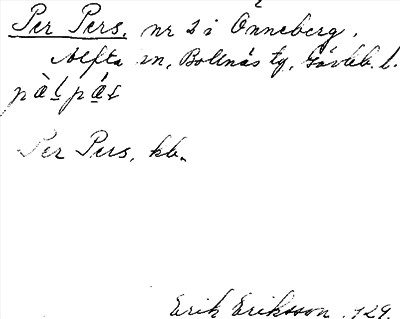 Per Pers, nr 2 i Önneberg,
Alfta sn, Bollnäs tg, Gävleb. l.
Per Pers, kb.
Erik Eriksson, 129.